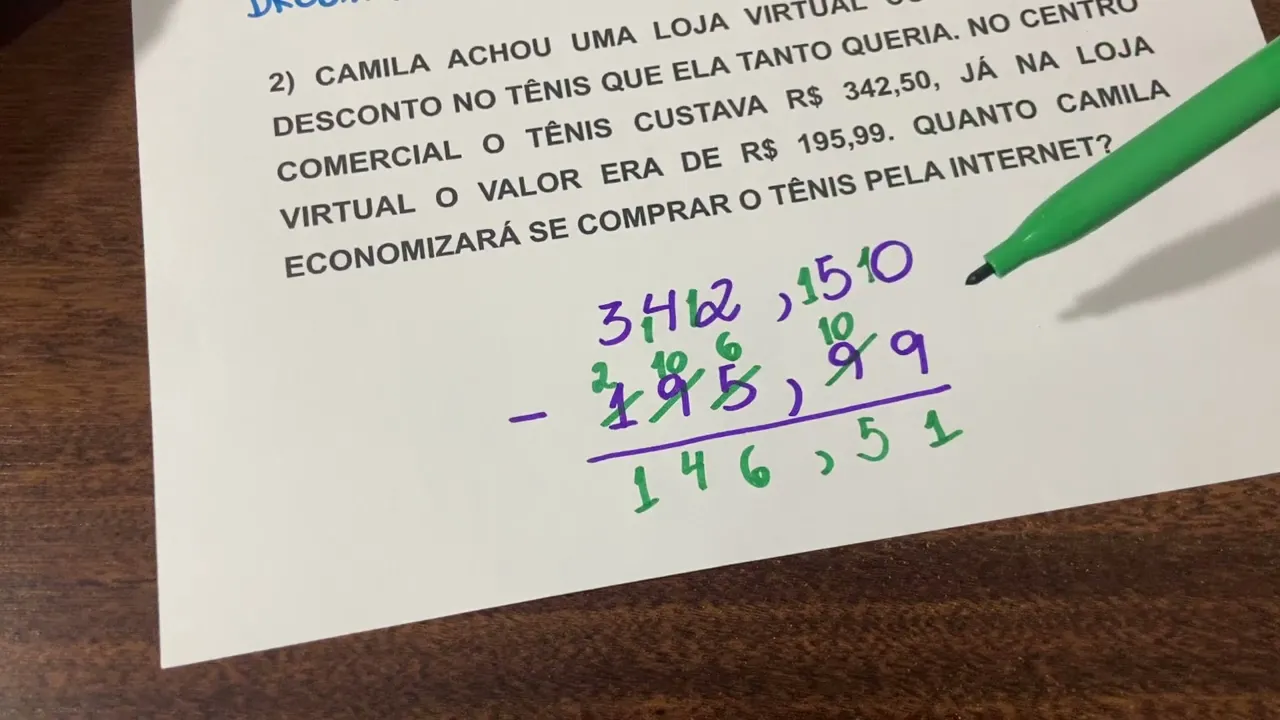 2) CAMILA ACHOU UMA LOJA VIRTUAL
DESCONTO NO TÊNIS QUE ELA TANTO QUERIA. NO CENTRO
COMERCIAL O TÊNIS CUSTAVA R$ 342,50, JÁ NA LOJA
VIRTUAL O VALOR ERA DE R$ 195,99. QUANTO CAMILA
ECONOMIZARÁ SE COMPRAR O TÊNIS PELA INTERNET?
3 14 12 , 15 10
2 10 6 10
- 195,99
146,51